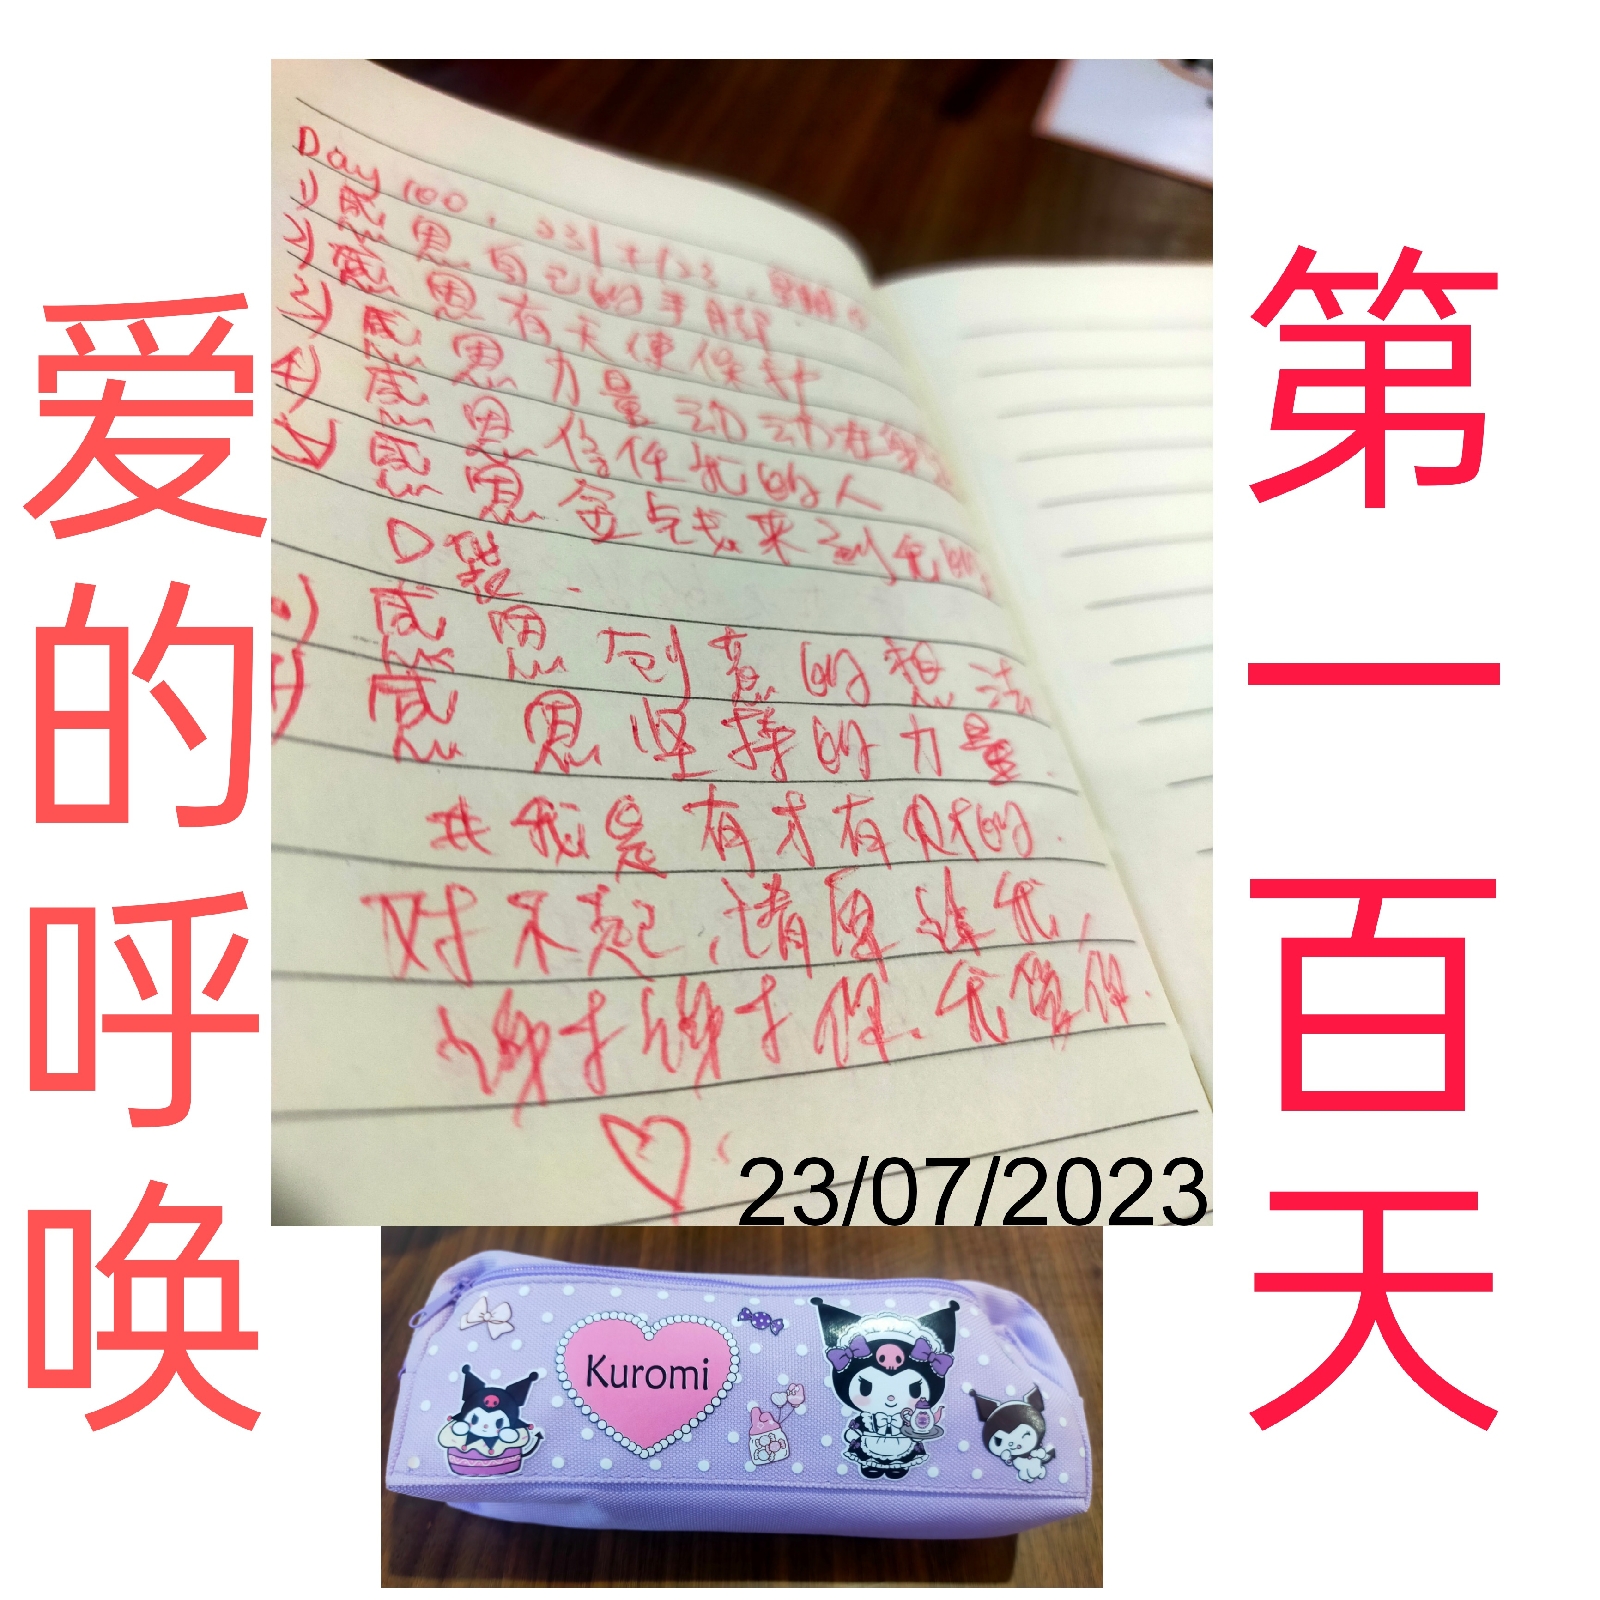 爱的呼唤
第一百天
Day 100, 23/7/23,
1) 感恩自己的手脚
2) 感恩有天使保护
3) 感恩力量
4) 感恩信任我的人
5) 感恩金钱来到我的
口袋.
感恩创意的想法
感恩坚持的力量.
我是有才有财的.
对不起,请原谅我,
谢谢你.我爱你.
23/07/2023
Kuromi